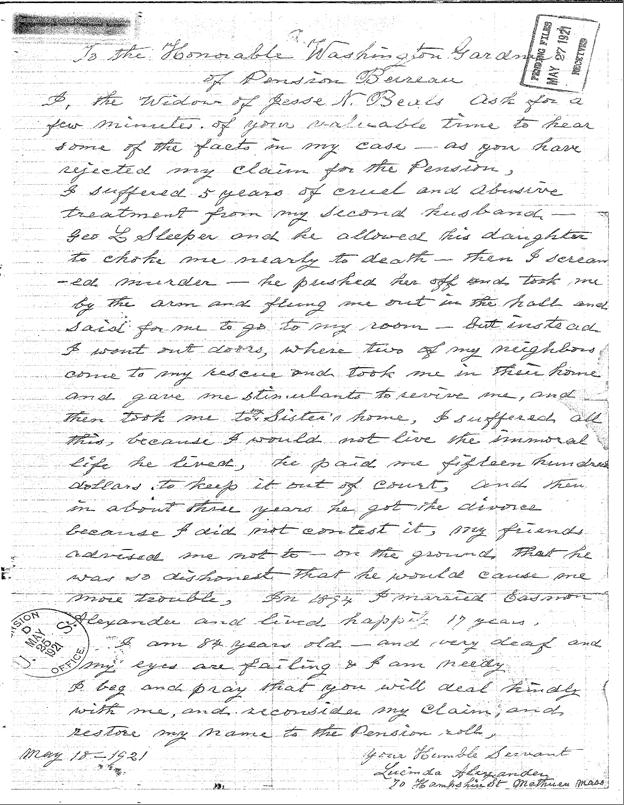 To the Honorable Washington Gardner
of Pension Bureau
I, the Widow of Jesse N. Beals Ask for a
few minutes of your valuable time to hear
some of the facts in my case – as you have
rejected my claim for the Pension,
I suffered 5 years of cruel and abusive
treatment from my second husband –
Geo L Sleeper and he allowed his daughter
to choke me nearly to death – then I scream
-ed murder – he pushed her off and took me
by the arm and flung me out in the hall and
said for me to go to my room – but instead
I went out doors, where two of my neighbors
come to my rescue and took me in their home
and gave me stimulants to revive me, and
then took me to Sister's home, I suffered all
this, because I would not live the immoral
life he lived, he paid me fifteen hundred
dollars to keep it out of court, and then
in about three years he got the divorce
because I did not contest it, my friends
advised me not to – on the ground, that he
was so dishonest that he would cause me
more trouble, In 1894 I married Easmon
Alexander and lived happily 17 years,
I am 84 years old – and very deaf and
my eyes are failing & I am needy
I beg and pray that you will deal kindly
with me, and reconsider my claim, and
restore my name to the Pension rolls,
May 18 – 1921
Your Humble Servant
Lucinda Alexander
70 Hampshire St Mathuen Mass
PENDING FILES
MAY 27 1921
RECEIVED
PENSION
U. S.
MAY
25
1921
OFFICE